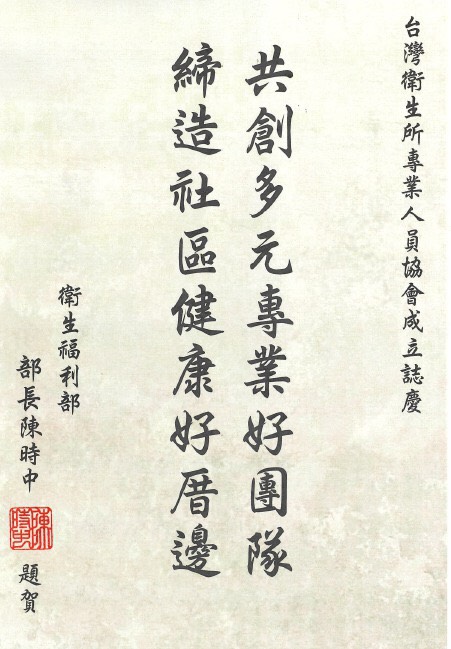 台灣衛生所專業人員協會成立誌慶
共創多元專業好團隊
締造社區健康好厝邊
衛生福利部
部長陳時中
陳時中
題賀